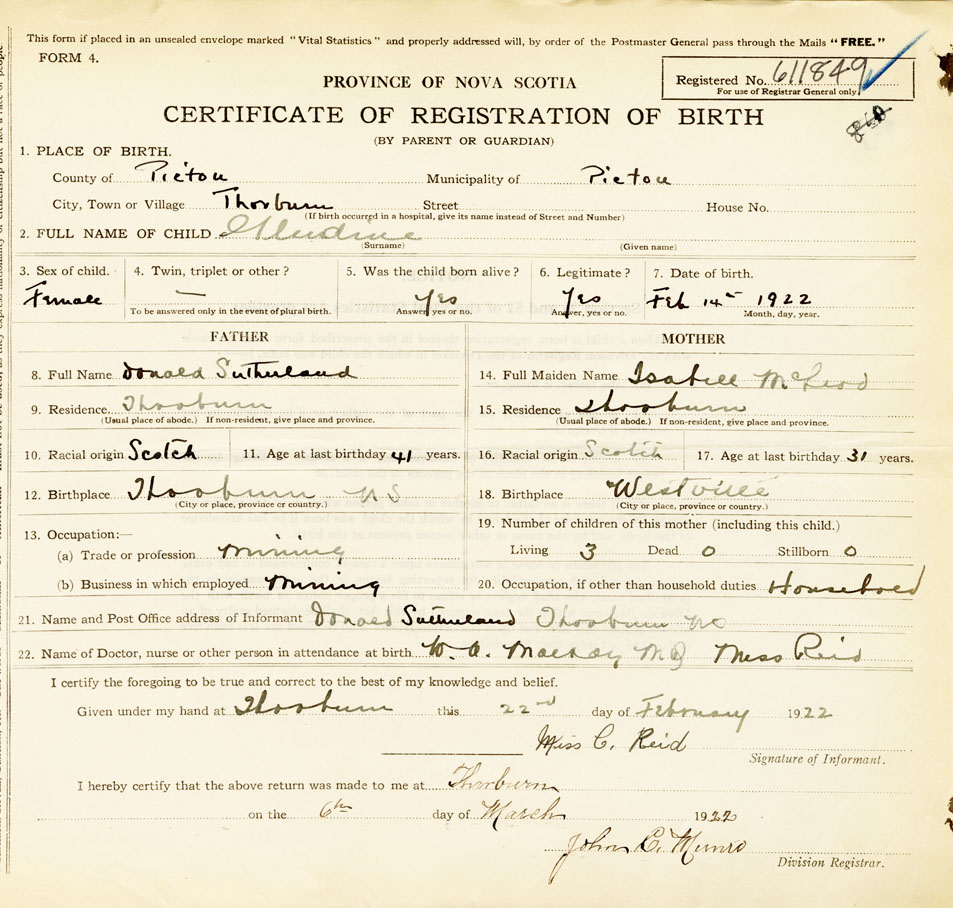 This form if placed in an unsealed envelope marked "Vital Statistics" and properly addressed will, by order of the Postmaster General pass through the Mails "FREE."
FORM 4.
Registered No. 611849
For use of Registrar General only.
PROVINCE OF NOVA SCOTIA
CERTIFICATE OF REGISTRATION OF BIRTH
(BY PARENT OR GUARDIAN)
1. PLACE OF BIRTH.
County of Pictou Municipality of Pictou
City, Town or Village Thorburn Street House No.
(If birth occurred in a hospital, give its name instead of Street and Number)
2. FULL NAME OF CHILD
(Surname) (Given name)
3. Sex of child. 4. Twin, triplet or other? 5. Was the child born alive? 6. Legitimate? 7. Date of birth.
Female — Yes Yes Feb 14th 1922
To be answered only in the event of plural birth. Answer, yes or no. Answer, yes or no. Month, day, year.
FATHER MOTHER
8. Full Name Donald Sutherland 14. Full Maiden Name Isabell McLeod
9. Residence. Thorburn 15. Residence Thorburn
(Usual place of abode.) If non-resident, give place and province. (Usual place of abode.) If non-resident, give place and province.
10. Racial origin Scotch 11. Age at last birthday 41 years. 16. Racial origin Scotch 17. Age at last birthday 31 years.
12. Birthplace Thorburn NS 18. Birthplace Westville
(City or place, province or country.) (City or place, province or country.)
19. Number of children of this mother (including this child.)
13. Occupation:—
(a) Trade or profession Mining Living 3 Dead 0 Stillborn 0
(b) Business in which employed Mining 20. Occupation, if other than household duties Household
21. Name and Post Office address of Informant Donald Sutherland Thorburn NS
22. Name of Doctor, nurse or other person in attendance at birth W. A. MacKay MD Miss Reid
I certify the foregoing to be true and correct to the best of my knowledge and belief.
Given under my hand at Thorburn this 22nd day of February 1922
Miss C. Reid
Signature of Informant.
I hereby certify that the above return was made to me at Thorburn
on the 6th day of March 1922
John C. Munro
Division Registrar.